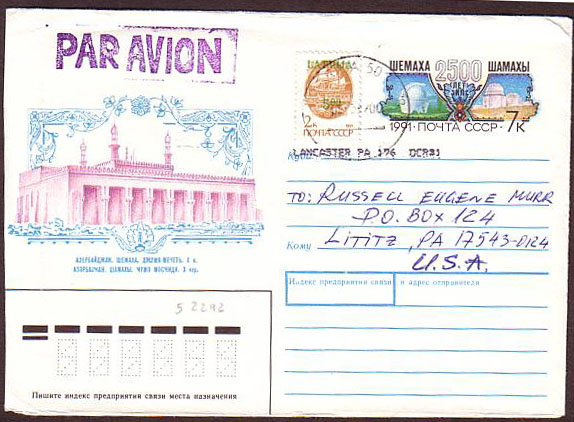 PAR AVION
2к
ПОЧТА СССР
ШЕМАХА 2500 ШАМАХЫ
ЛЕТ
ИЛЛИК
1991·ПОЧТА СССР· 7 К
LANCASTER PA 176 DCR#1
Куда
TO: RUSSELL EUGENE MURR
P.O. BOX 124
Кому LITITZ, PA 17543-0124
U.S.A.
АЗЕРБАЙДЖАН. ШЕМАХА. ДЖУМА-МЕЧЕТЬ. X в.
АЗӘРБАЈҸАН. ШАМАХЫ. ҸҮМӘ МӘСҸИДИ. X әср.
Индекс предприятия связи и адрес отправителя
5 2292
Пишите индекс предприятия связи места назначения